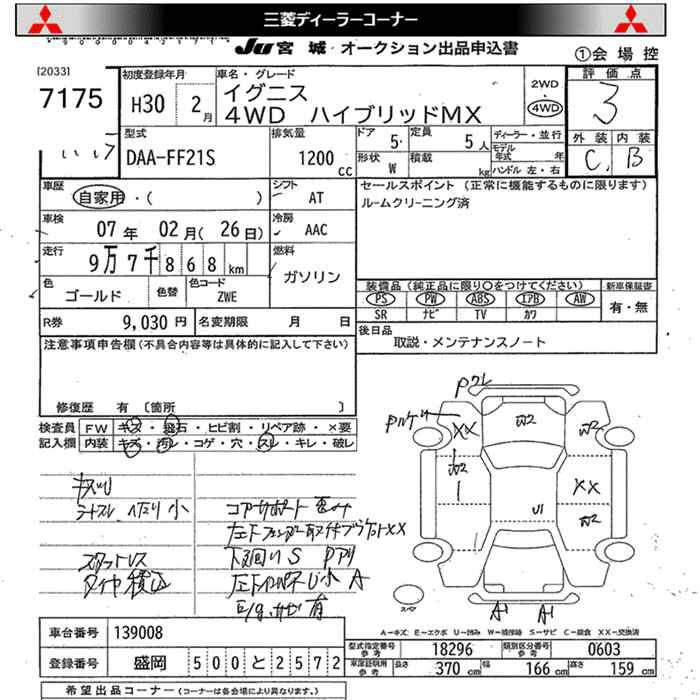 三菱ディーラーコーナー
*9000042111*
Ju宮城・オークション出品申込書
①会場控
[2033]
7175
初度登録年月
H30 2月
車名・グレード
イグニス
4WD ハイブリッドMX
2WD
・
4WD
評価点
3
型式
DAA-FF21S
排気量
1200 cc
ドア 5
定員 5人
形状 W
積載 kg
ディーラー・並行
モデル年式 年
ハンドル 左・右
外装 内装
C B
車歴
自家用・( )
シフト AT
車検
07年 02月(26日)
冷房 AAC
走行
9万7千868km
燃料
ガソリン
色
ゴールド
色替
色コード
ZWE
R券 9,030円
名変期限 月 日
セールスポイント (正常に機能するものに限ります)
ルームクリーニング済
装備品(純正品に限り○をつけてください)
新車保証書
PS PW ABS エアB AW
SR ナビ TV カワ
有・無
後日品
取説・メンテナンスノート
注意事項申告欄(不具合内容等は具体的に記入して下さい)
修復歴 有 〔箇所 〕
検査員記入欄
FW キズ・飛石・ヒビ割・リペア跡・×要
内装 キズ・汚レ・コゲ・穴・スレ・キレ・破レ
シートスレ ヘタリ 小
コアサポート
XX
下回りS
A
E/g サビ有
スタッドレス
タイヤ積込
XX
W2
W2
W2
XX
W2
U1
A1 A1
スペア
A-キズ E-エクボ U-凹み W-補修跡 S-サビ C-腐食 XX-交換済
車台番号 139008
登録番号 盛岡 500と2572
型式指定番号参考 18296
類別区分番号参考 0603
車庫証明用参考 長さ 370cm 幅 166cm 高さ 159cm
希望出品コーナー(コーナーは各会場により異なります。)